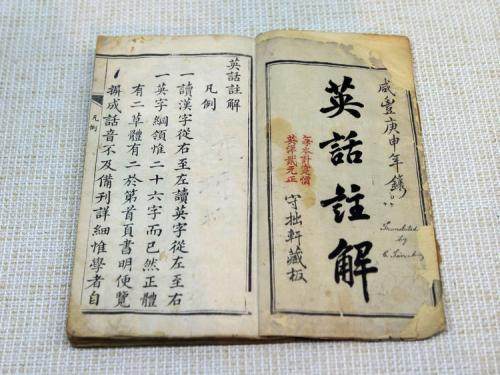 咸豊庚申年鐫
英話註解
每本計定價
英洋貳元正
守拙軒藏板
Translated
by
英話註解
凡例
一讀漢字從右至左讀英字從左至右
一英字綱領惟二十六字而已然正體
有二草體有二於第首頁書明便覽
成話音不及備刊詳細惟學者自
凡例